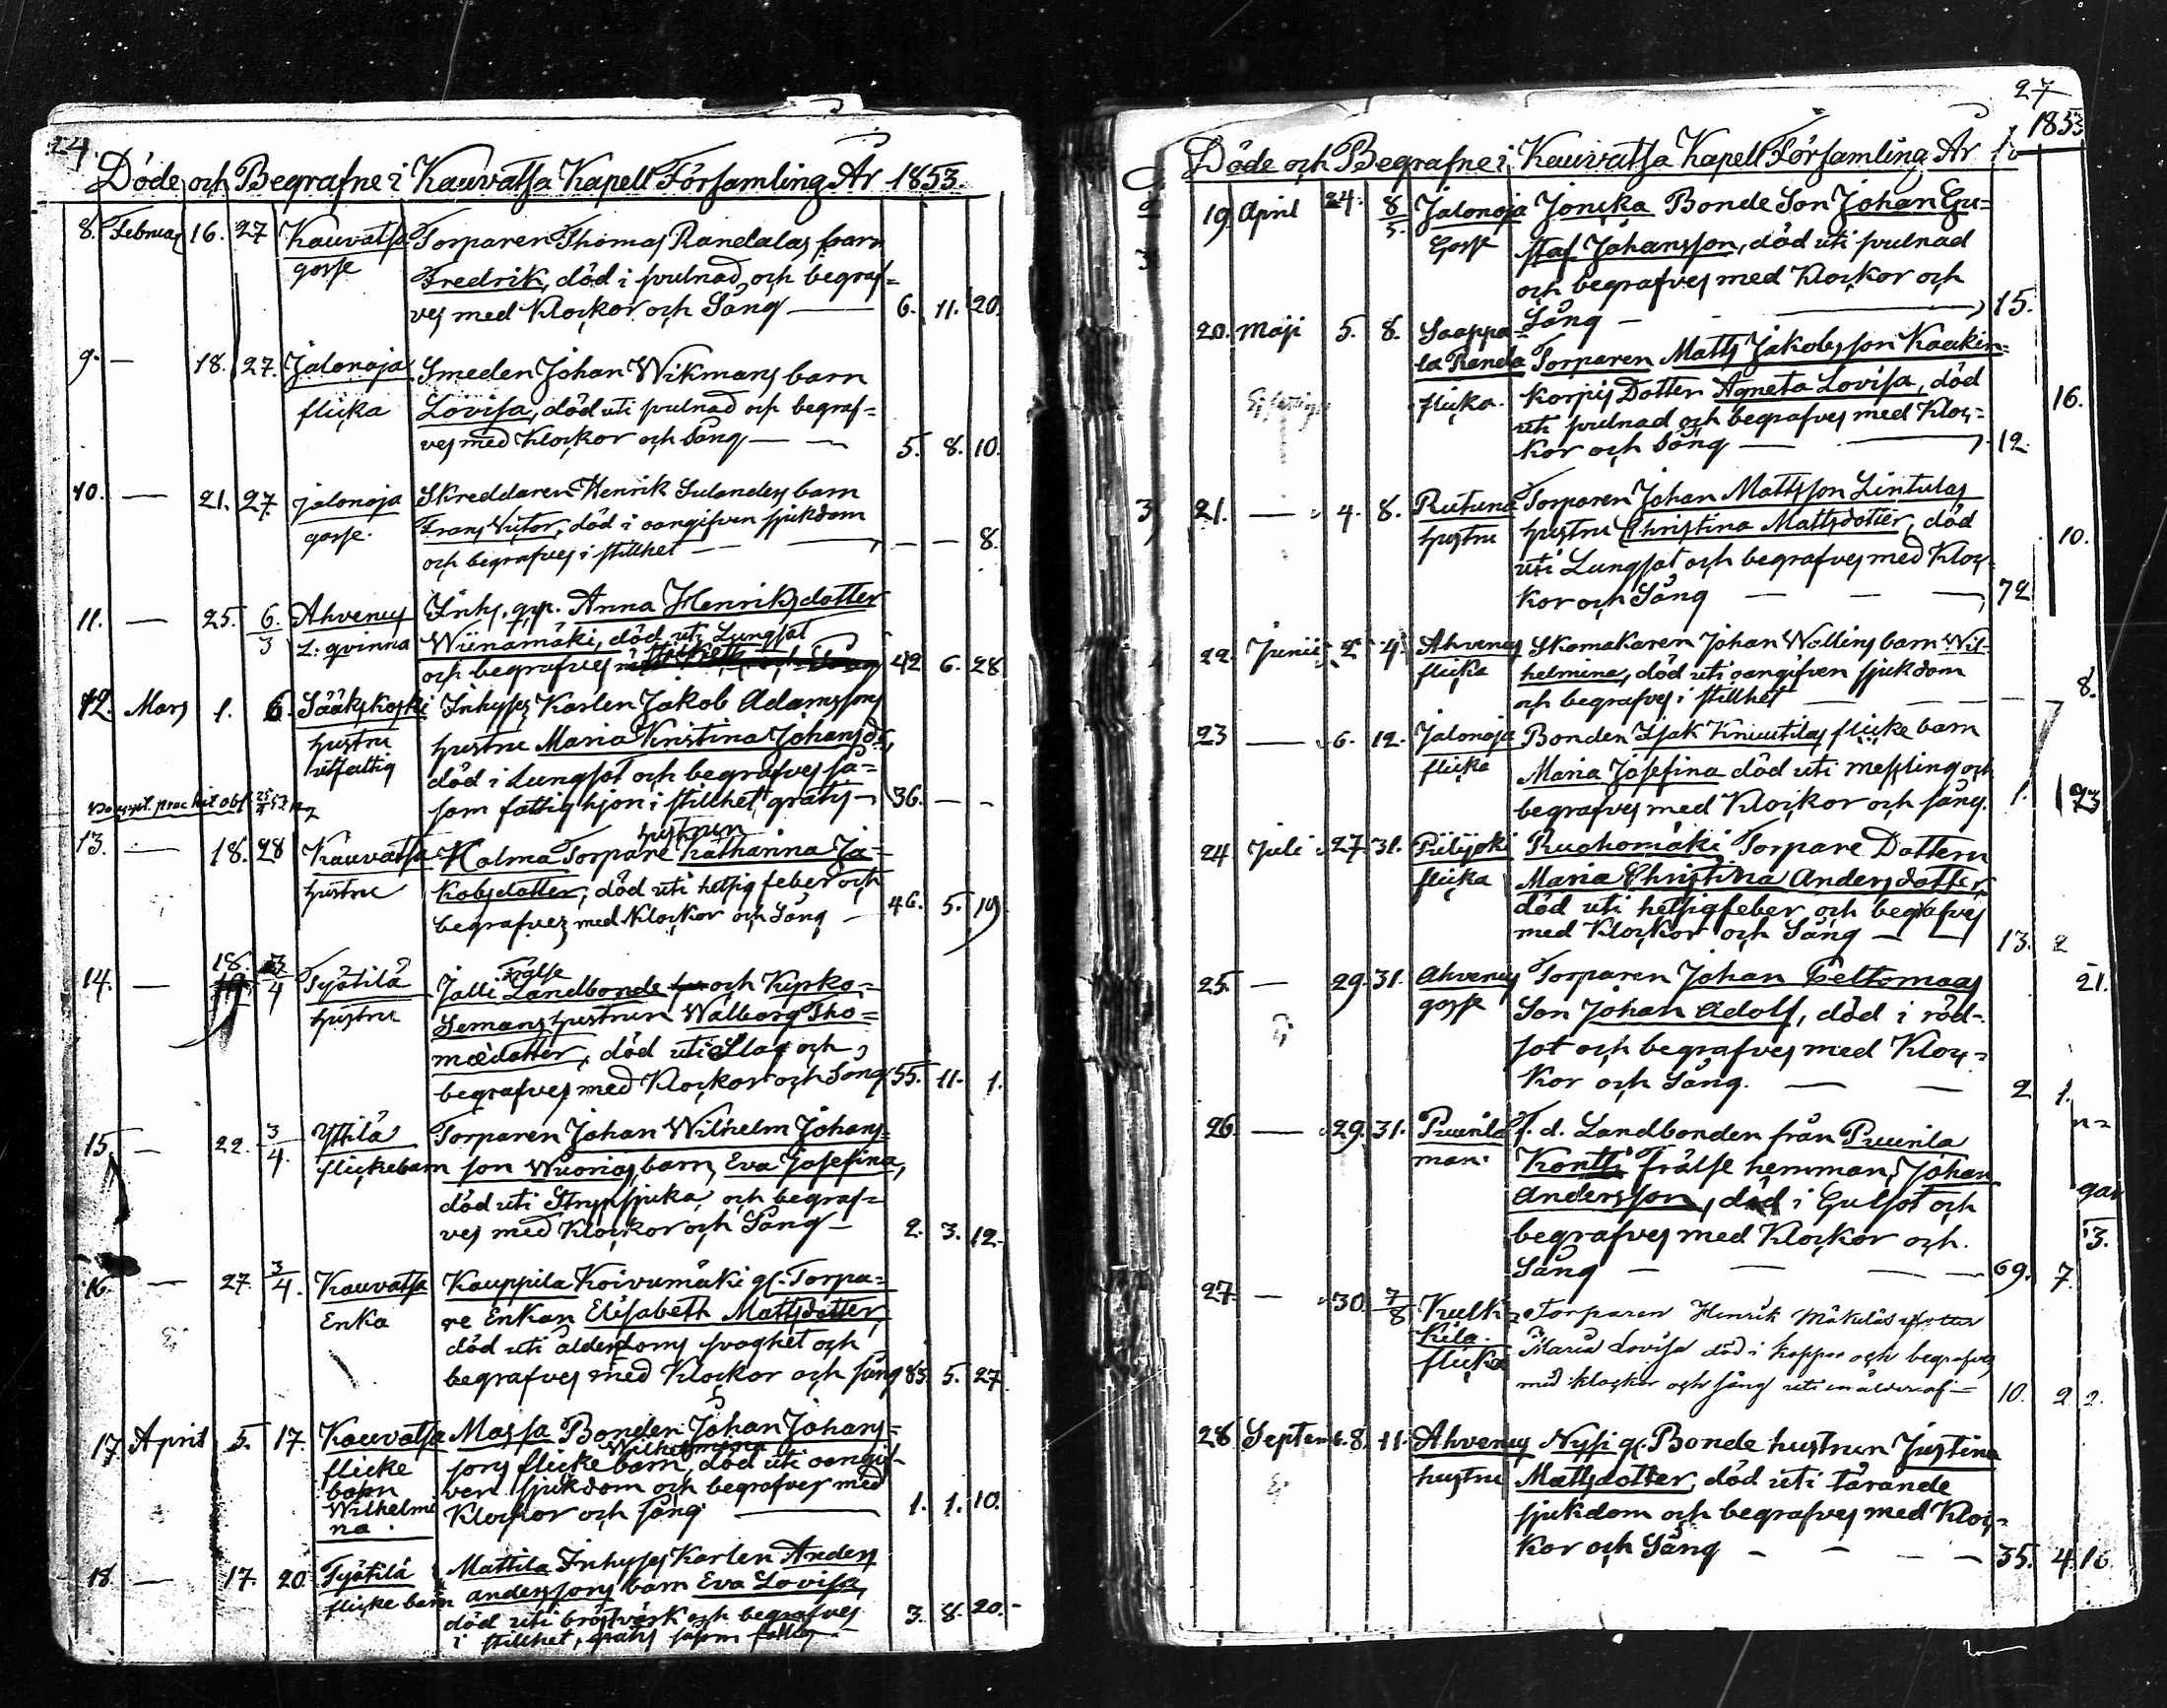 24.
Döde och Begrafne i Kauvatsa Kapell Församling År 1853.
8. Februar 16. 27 Kauvatsa Torparen Thomas Randalas barn
gosse Fredrik, död i svulnad och begraf=
ves med Klockor och Sång — 6. 11. 20.
9. — 18. 27. Jalonoja Smeden Johan Wikmans barn
flicka Lovisa, död uti svulnad och begraf=
ves med Klockor och Sång — — 5. 8. 10.
10. — 21. 27. Jalonoja Skreddaren Henrik Sulanders barn
gosse. Frans Victor, död i oangifven sjukdom
och begrafves i stillhet — — — — 8.
11. — 25. 6/3 Ahvenus Inhs. qvp. Anna Henriksdotter
L: qvinna Wiinamäki, död uti Lungsot
och begrafves 42 6. 28
12. Mars 1. 6. Sääkskoski Inhyses Karlen Jakob Adamssons
hustru hustru Maria Kristina Johansdr,
utfattig död i Lungsot och begrafves så=
som fattighjon i stillhet gratis — 36. — —
13. — 18. 28 Kauvatsa Kalma Torpare hustrun Katharina Ja=
hustru kobsdotter, död uti hetsig feber och
begrafves med Klockor och Sång — 46. 5. 19
14. — 18. 3/4 Työtilä Jalli Frälse Landbonde och Kipko=
hustru Semans hustrun Walborg Tho=
mædotter, död uti Slag och
begrafves med Klockor och Song 55. 11. 1.
15. — 22. 3/4. Yttilä Torparen Johan Wilhelm Johans=
flickebarn son Wuorios barn, Eva Josefina,
död uti Strypsjuka och begraf=
ves med Klockor och Sång — 2. 3. 12.
16. — 27. 3/4. Kauvatsa Kauppila Koivumäki gl. Torpa=
Enka re Enkan Elisabeth Mattsdotter,
död uti ålderdoms svaghet och
begrafves med Klockor och sång 83. 5. 27
17. April 5. 17. Kauvatsa Massa Bonden Johan Johans=
flicke sons flickebarn Wilhelmina, död uti oangif=
barn ven sjukdom och begrafves med
Wilhelmi
na. Klockor och sång — 1. 1. 10.
18 — 17. 20 Työtilä Mattila Inhyses Karlen Anders
flickebarn anderssons barn Eva Lovisa,
död uti bröstvärk och begrafves
i stillhet, gratis såsom fattig. 3. 8. 20.
27
Döde och Begrafne i Kauvatsa Kapell Församling År 1853
19. April 24. 8/5. Jalonoja Joncka Bonde Son Johan Gu=
Gosse staf Johansson, död uti svulnad
och begrafves med Klockor och
Sång — — 15.
20. Maji 5. 8. Saappa=
la Randa Torparen Matts Jakobsson Kaakin=
flicka. korpis Dotter Agneta Lovisa, död
uti svulnad och begrafves med Kloc= 16.
kor och Sång — — 12
21. — 4. 8. Rutuna Torparen Johan Mattsson Lintulas
hustru hustru Christina Mattsdotter, död 10.
uti Lungsot och begrafves med Kloc=
kor och Sång — — — 72
22. Junii 2. 4. Ahvenus Skomakaren Johan Wallins barn Wil=
flicka helmina, död uti oangifven sjukdom
och begrafves i stillhet — — — 8.
23 — 6. 12. Jalonoja Bonden Isak Knuutilas flicke barn
flicka Maria Josefina död uti messling och
begrafves med Klockor och sång. 1. 1 23
24 Juli 27. 31. Piilijoki Ruohomäki Torpare Dottern
flicka Maria Christina Andersdotter,
död uti hetsigfeber och begrafves
med Klockor och Sång — — 13. 2
25. — 29. 31. Ahvenus Torparen Johan Peltomaas 21.
gosse Son Johan Adolf, död i röd=
sot och begrafves med Kloc=
kor och Sång. — — 2 1.
26. — 29. 31. Puurila F. d. Landbonden från Puurila
man. Kontti Frälse hemman, Johan
Andersson, död i Gulsot och
begrafves med Klockor och 13.
Sång — — — — 69. 7.
27. — 30. 7/8 Kulki= Torparen Henrik Mäkeläs dotter
kila. Maria Lovisa död i koppor och begrafves
flicka med klockor och sång uti en ålder af = 10. 2 2.
28 Septemb. 8. 11. Ahvenus Nysi gl. Bonde hustrun Justina
hustru Mattsdotter, död uti tärande
sjukdom och begrafves med Kloc=
kor och Sång — — — — 35. 4. 16.